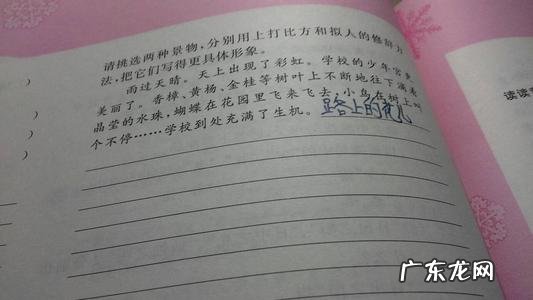 请挑选两种景物，分别用上打比方和拟人的修辞方
法，把它们写得更具体形象。
雨过天晴。天上出现了彩虹。学校的少年宫更
美丽了。香樟、黄杨、金桂等树叶上不断地往下滴着
晶莹的水珠，蝴蝶在花园里飞来飞去，小鸟在树上叫
个不停……学校到处充满了生机。路上的花儿
）
）
）
）
读读
广东龙网